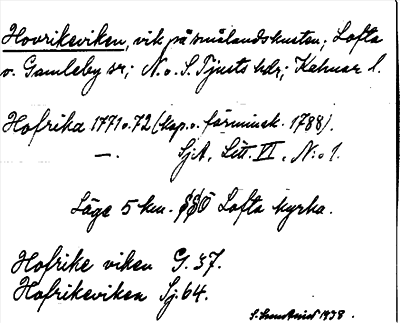 Hovrikeviken, vik på smålandskusten; Lofta
o. Gamleby sr; N. o. S. Tjusts hdr; Kalmar l.
Hofrika 1771 o. 72 (kop. o. förminsk. 1788).
—. SjA, Litt. VI, N:o 1.
Läge 5 km. SSÖ Lofta kyrka.
Hofrike viken G. 37.
Hofrikeviken Sj. 64.
1938.